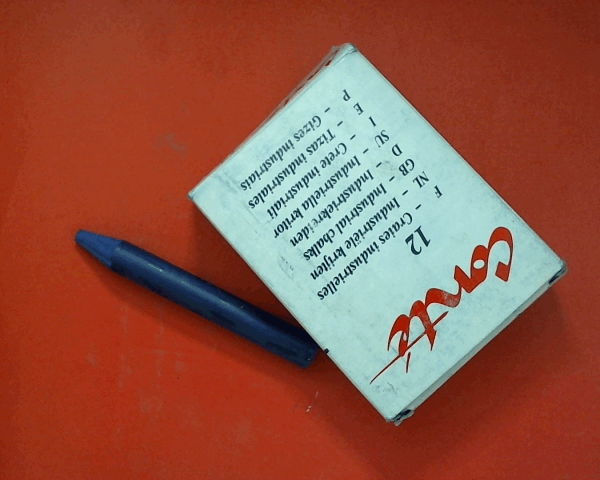 Conté
12
F - Craies industrielles
NL - Industriële krijten
GB - Industrial chalks
D - Industriekreiden
SU - Industriella kritor
I - Crete industriali
E - Tizas industriales
P - Gizes industriais